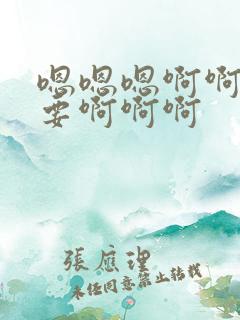 嗯嗯嗯啊啊
要啊啊啊
張應理
未经同意禁止转载